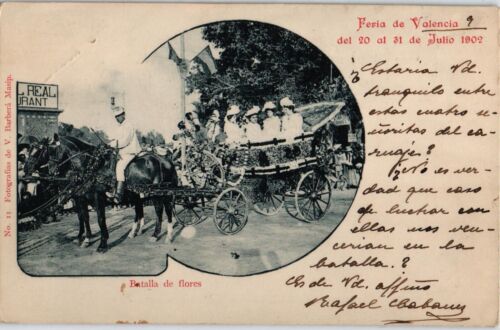 Feria de Valencia 9
del 20 al 31 de Julio 1902
L REAL
URANT
No. 11 Fotografías de V. Barberá Masip.
Batalla de flores
¿Estaria Vd.
tranquilo entre
estas cuatro se-
ñoritas del ca-
rruaje? ¿No es ver-
dad que caso
de luchar con
ellas nos ven-
cerian en la
batalla?
Es de Vd. affmo
Rafael